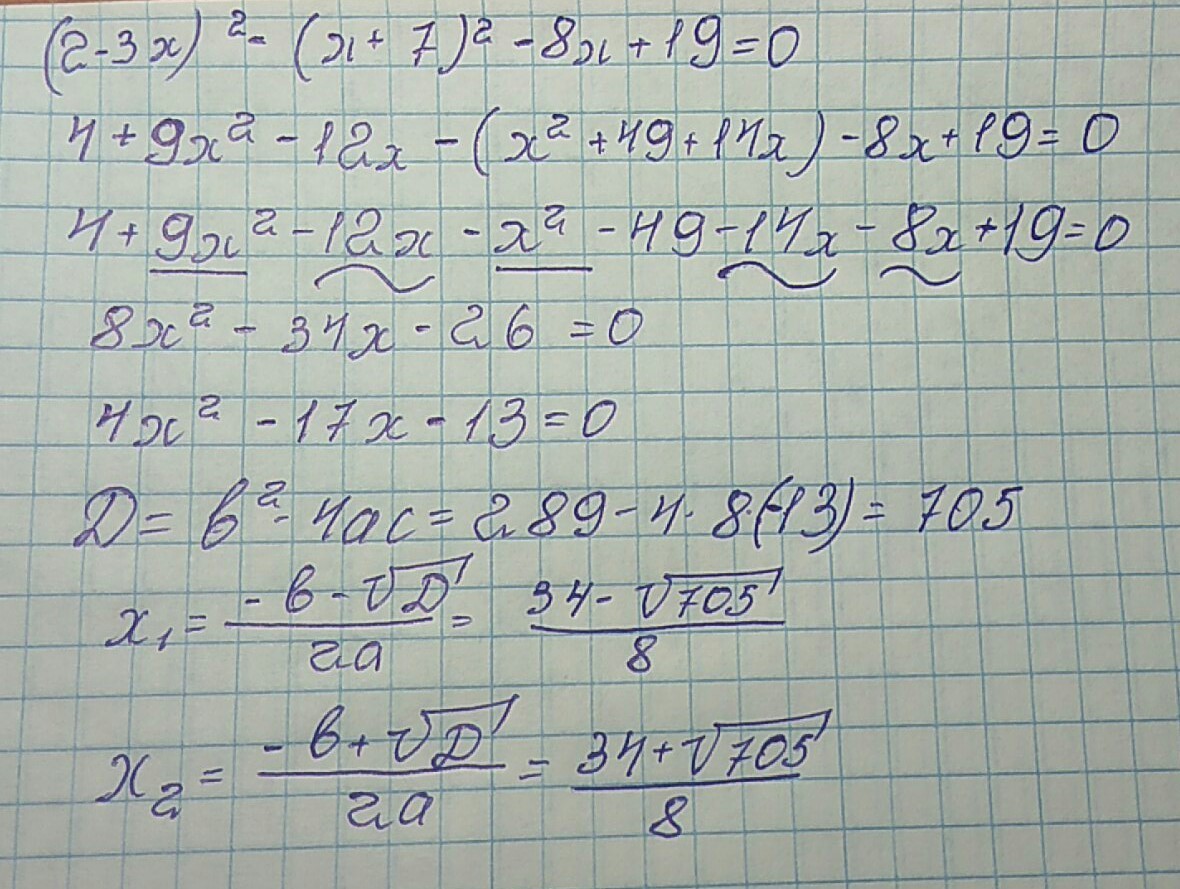 (2-3x)² - (x+7)² - 8x + 19 = 0
4 + 9x² - 12x - (x² + 49 + 14x) - 8x + 19 = 0
4 + 9x² - 12x - x² - 49 - 14x - 8x + 19 = 0
8x² - 34x - 26 = 0
4x² - 17x - 13 = 0
D = b² - 4ac = 289 - 4·8·(-13) = 705
x₁ = (-b - √D)/2a = (34 - √705)/8
x₂ = (-b + √D)/2a = (34 + √705)/8